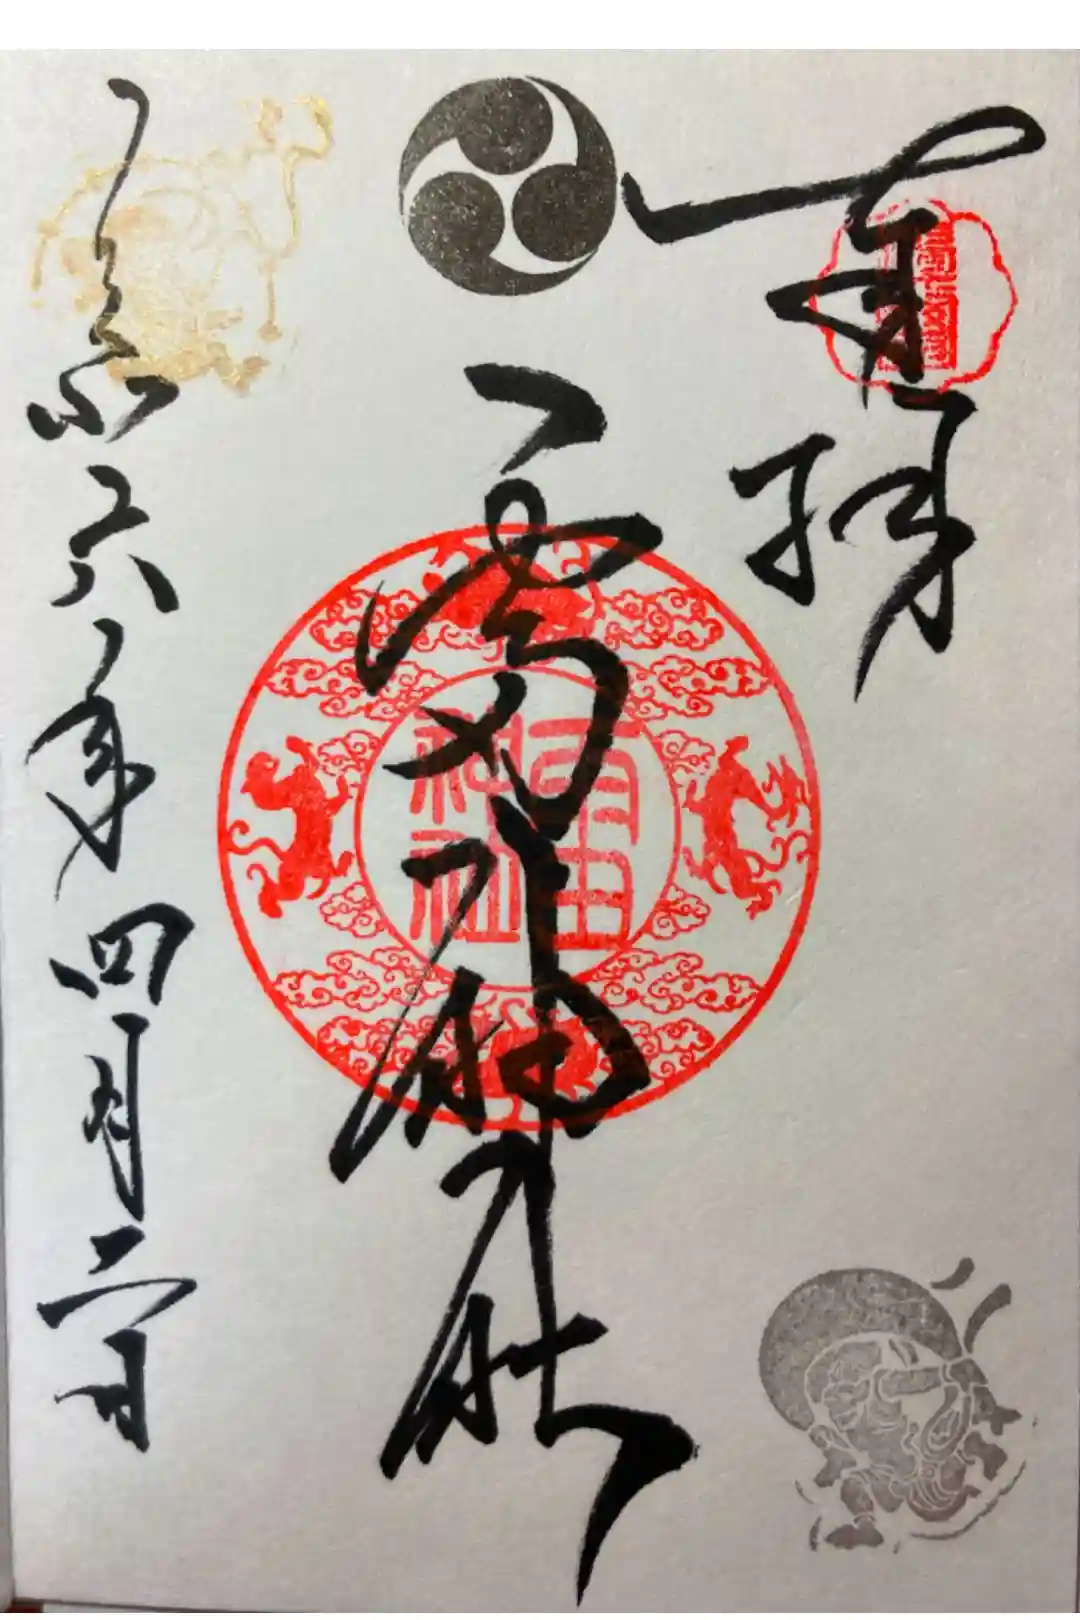 奉拝
雷神社
雷神社
令和六年四月二日